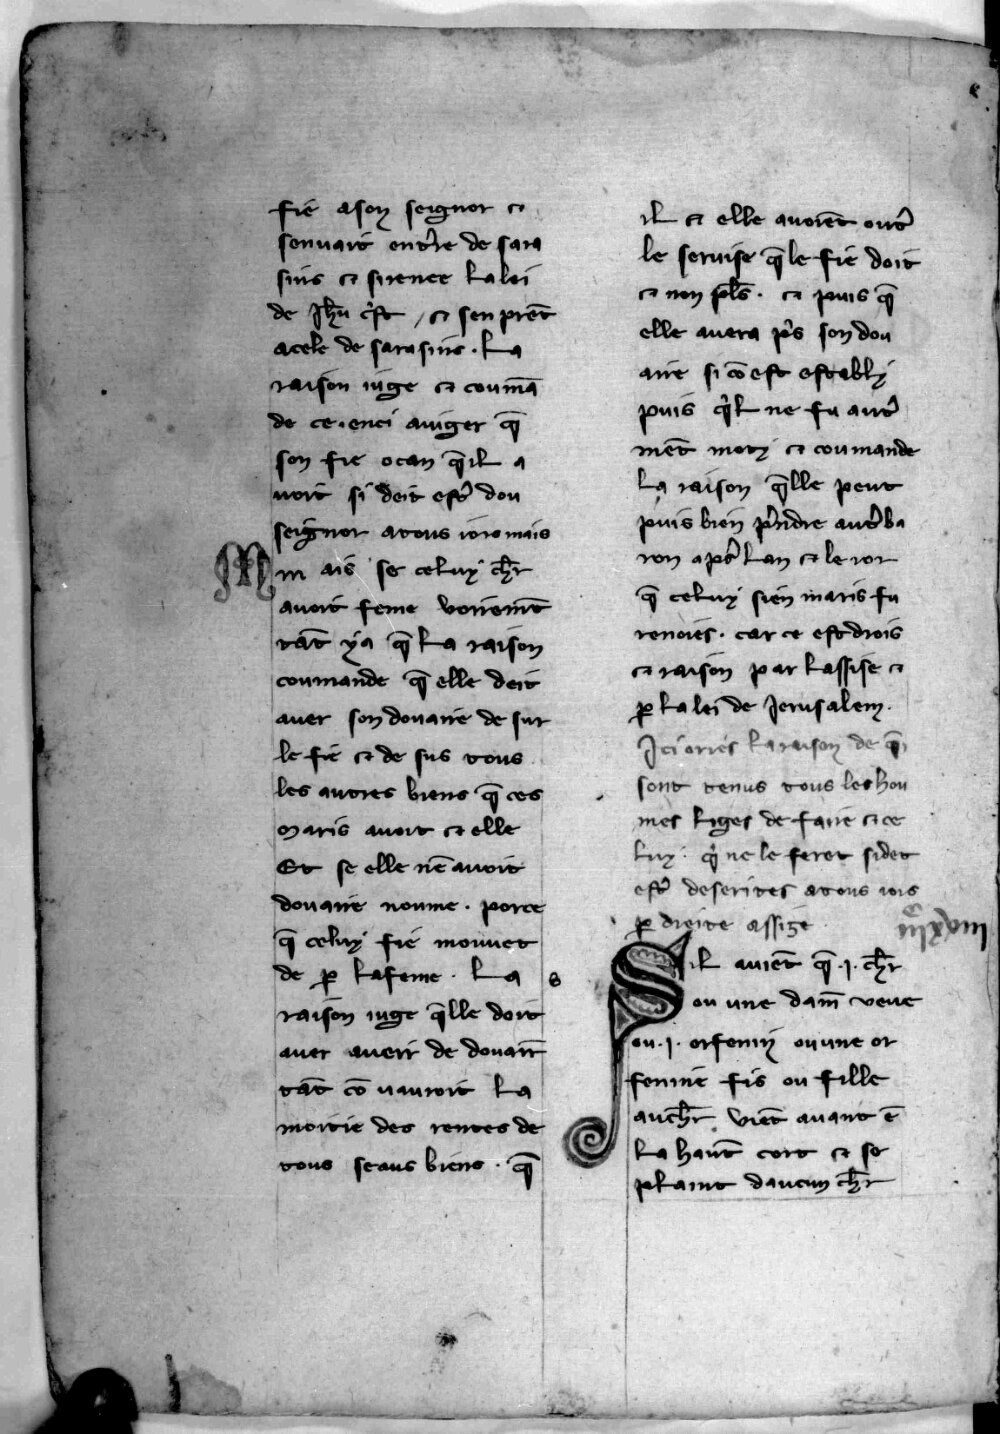 fie a son seignor et
senvait entre de sara
sins et sirenee la lei
de Jhu crist / et sen prent
a cele de sarasins . La
raison iuge et couman
de ce . enci a iuger que
son fie o can que il a
voit si deit estre dou
seignor a tous iors mais
M m ais se celuy chr
avoit feme voirement
tant y a que la raison
coumande que elle deit
aver son douaire de sur
le fie et de sus tous
les autres biens que ces
maris avoit et elle
Et se elle nen avoit
douaire noume . porce
que celuy fie mouvet
de par la feme . La
raison iuge quelle doit
aver averi de douaire
tant com vauroit la
moitie des rentes de
tous seaus biens . que
il et elle avoient outre
le servise que le fie doit
et non plus . et puis que
elle avera pris son dou
aire si com est estably
puis quil ne fu autre
ment moty et coumande
la raison quelle peut
puis bien prendre autre ba
ron apres lan et le ior
que celuy sien maris fu
renoies . car ce est drois
et raison par lassise et
par la lei de Jerusalem .
Ici ories la raison de que
sont tenus tous les hou
mes liges de faire et ce
luy . qui ne le feret si det
estre deserites a tous iors
par dreite assize
S il avient que .i. chr
ou une dame veve
ou .i. orfenin ou une or
fenine fis ou fille
au chr vient avant en
la haute cort et se
plaint daucun chr